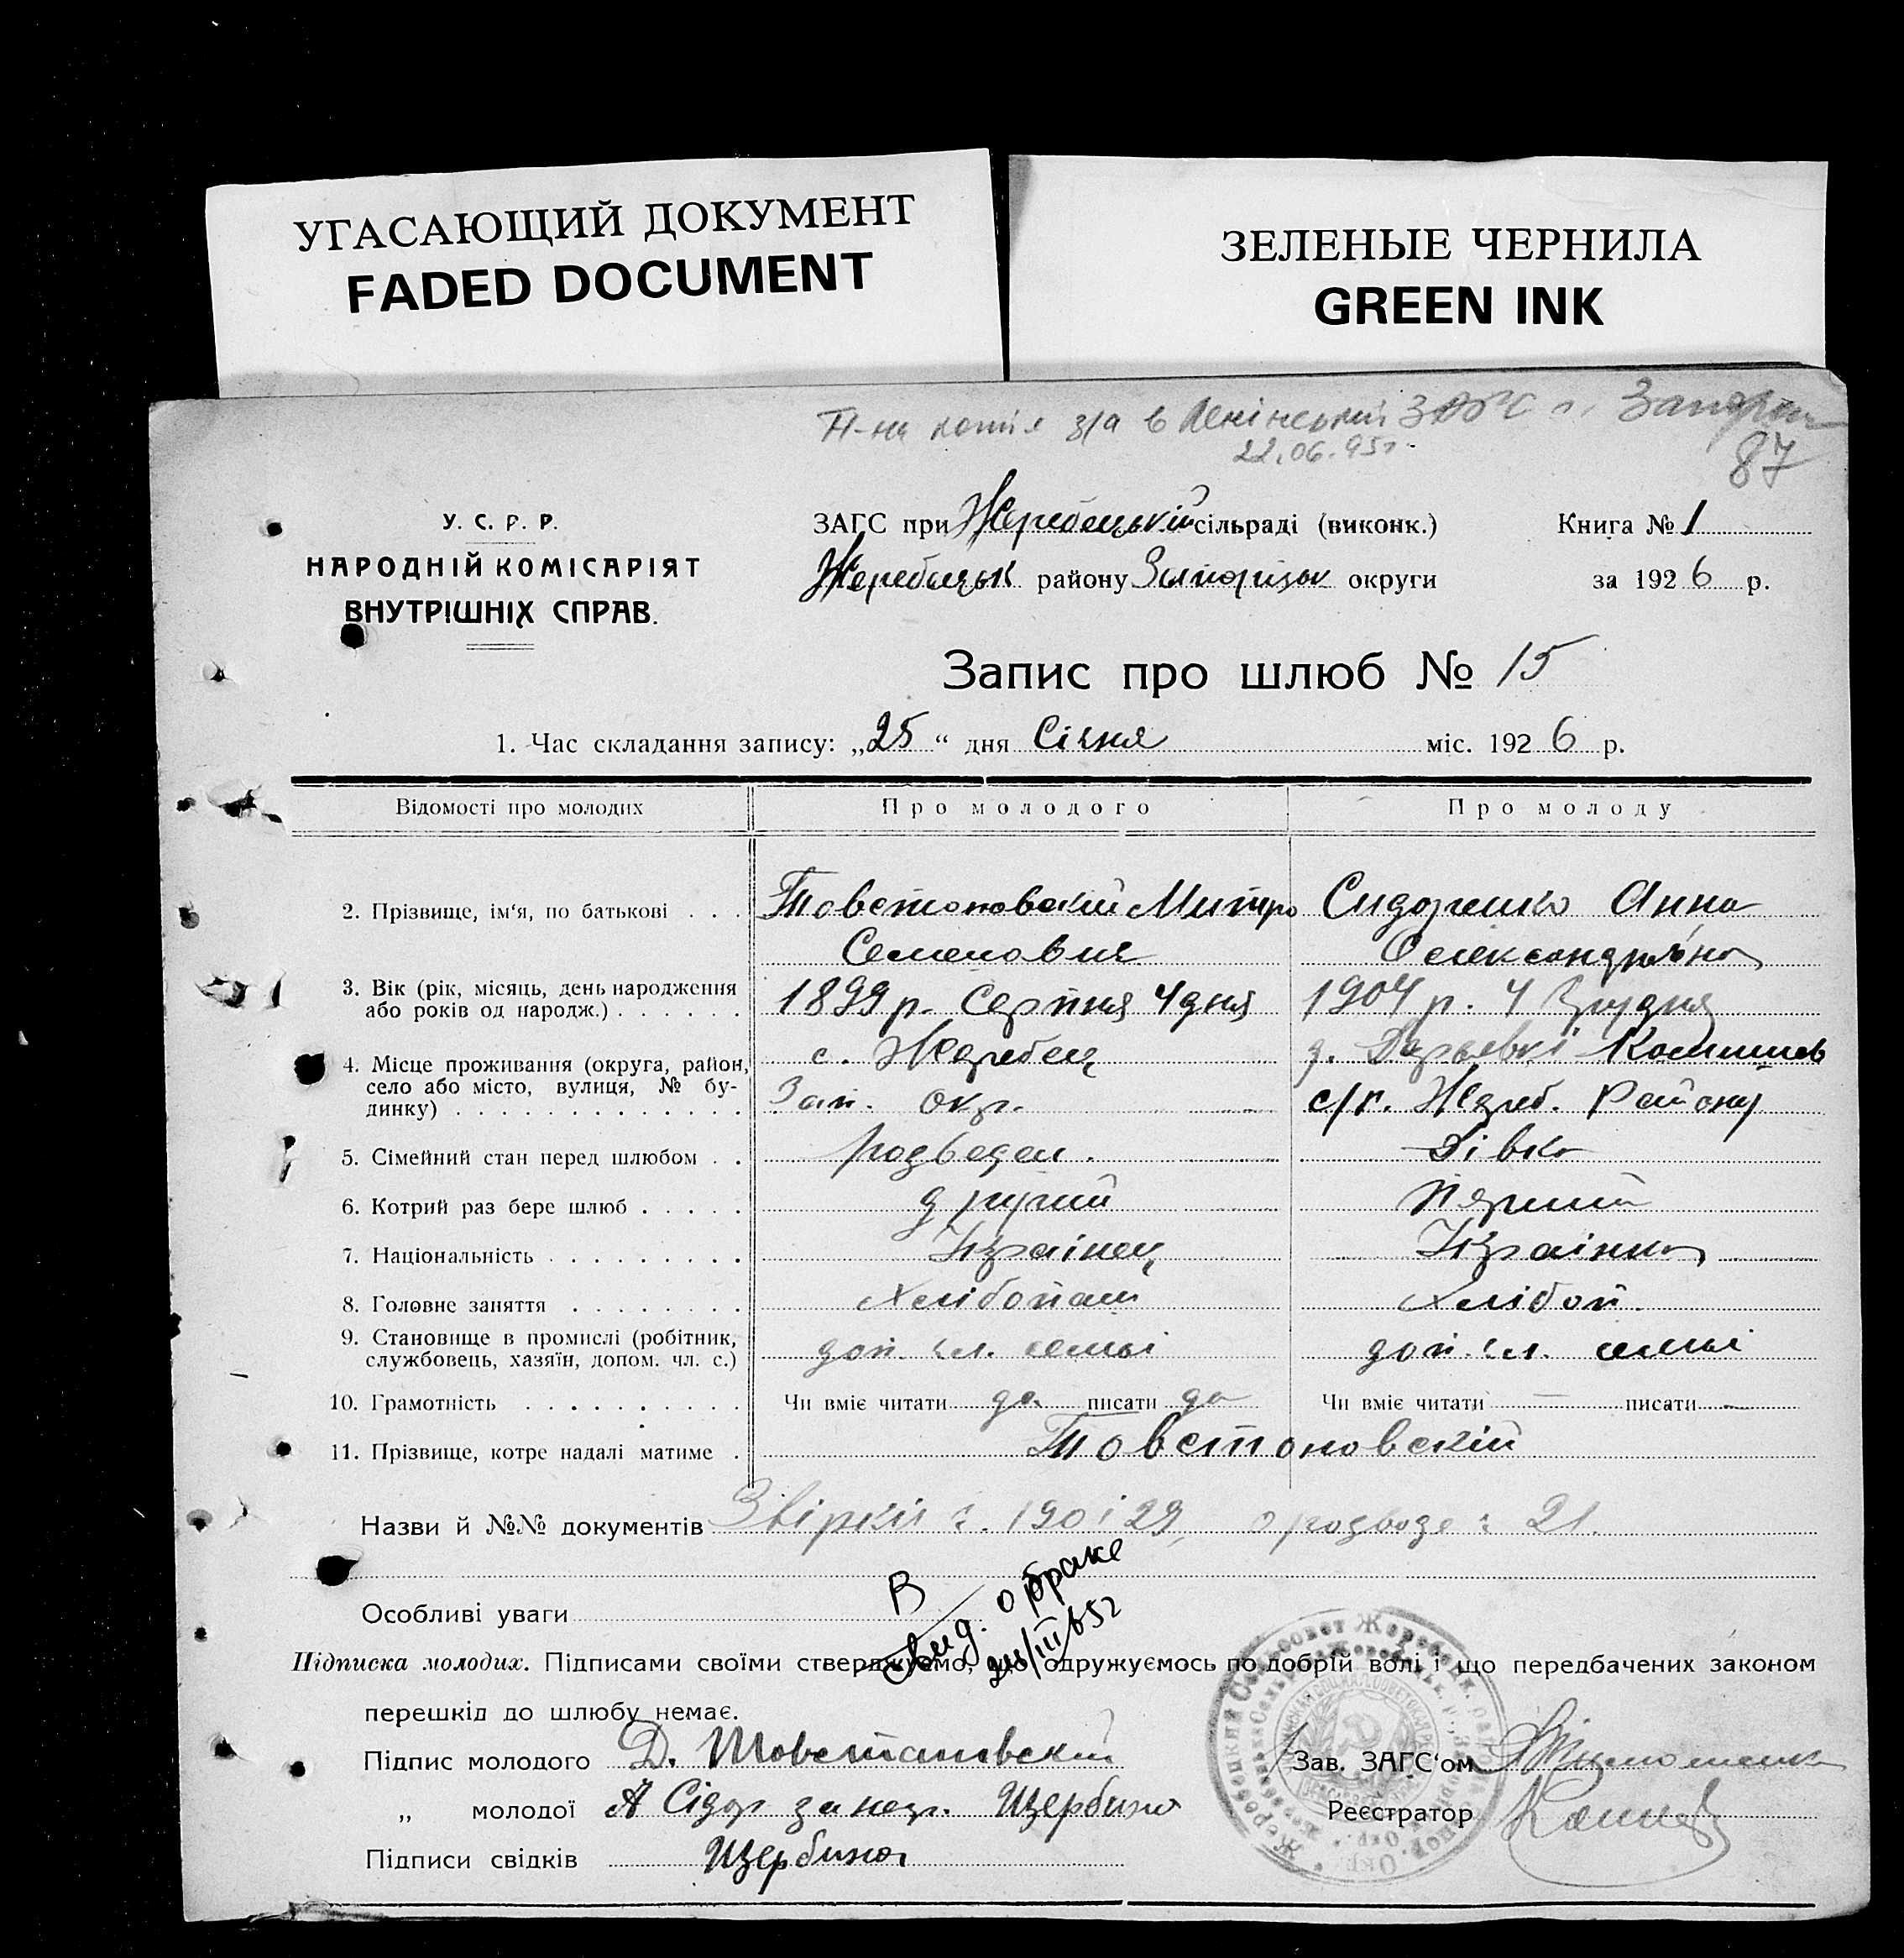 УГАСАЮЩИЙ ДОКУМЕНТ
FADED DOCUMENT
ЗЕЛЕНЫЕ ЧЕРНИЛА
GREEN INK
копія з/а в Ленінський ЗАГС
22.06.95г.
87
У. С. Р. Р.
НАРОДНІЙ КОМІСАРІЯТ
ВНУТРІШНІХ СПРАВ.
ЗАГС при Жеребецькій сільраді (виконк.)
Книга № 1
Жеребецьк району Запоріцьк округи
за 1926 р.
Запис про шлюб № 15
1. Час складання запису: „25“ дня Січня міс. 1926 р.
Відомості про молодих
Про молодого
Про молоду
2. Прізвище, ім‘я, по батькові . . .
Товстоновский Митро
Семенович
Сидоренко Анна
Олександрівна
3. Вік (рік, місяць, день народження
або років од народж.) . . . . . .
1899 р. Серпня 4 дня
1904 р. 4 Грудня
4. Місце проживання (округа, район,
село або місто, вулиця, № бу-
динку) . . . . . . . . . . . . .
с. Жеребец
Зап. окр.
с/р. Жереб. Району
5. Сімейний стан перед шлюбом . .
розведен.
Дівка
6. Котрий раз бере шлюб . . . . .
другий
Перший
7. Національність . . . . . . . . .
Українец
Українка
8. Головне заняття . . . . . . .
Хлібопаш
хлібоп.
9. Становище в промислі (робітник,
службовець, хазяїн, допом. чл. с.)
доп. чл. семьі
доп. чл. семьі
10. Грамотність . . . . . . . . . .
Чи вміє читати да писати да
Чи вміє читати — писати —
11. Прізвище, котре надалі матиме .
Товстоновский
Назви й №№ документів 190 і 29, о розводе 21.
Особливі уваги
В
Свид. о браке
Підписка молодих. Підписами своїми стверджуємо, що одружуємось по добрій волі і що передбачених законом
перешкід до шлюбу немає.
Підпис молодого Д. Товстановский
Зав. ЗАГС‘ом
„ молодої А Сідор за негр. Щербина
Реєстратор
Підписи свідків Щербина